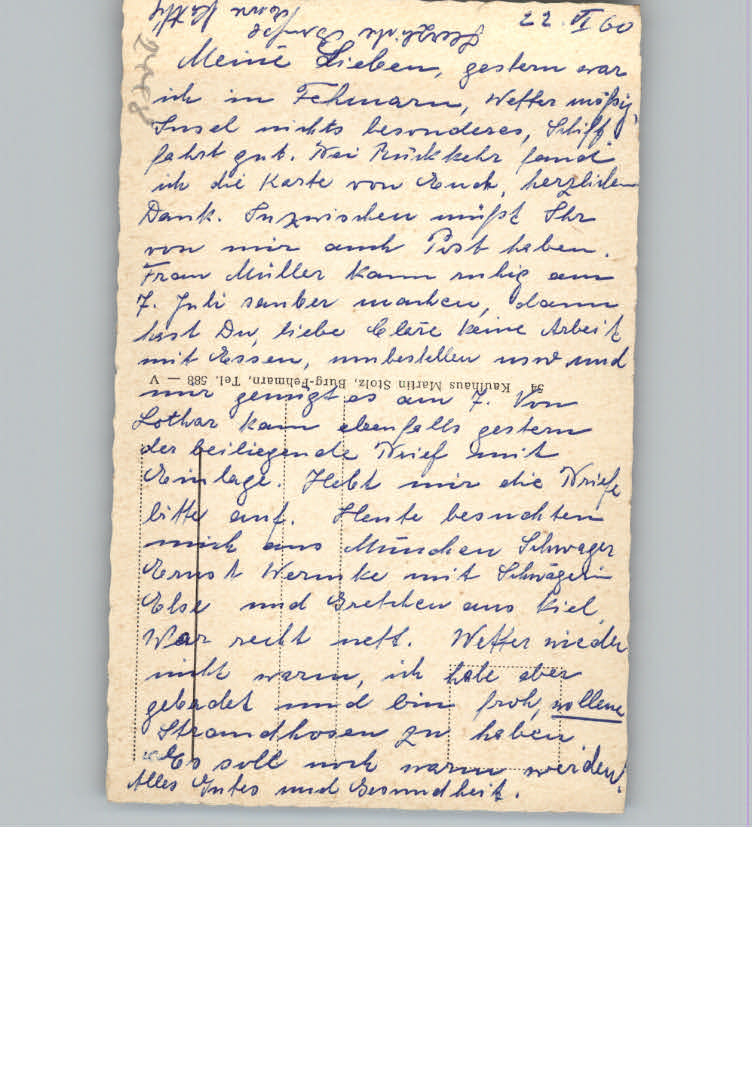 22. VI 60
Meine Lieben, gestern war
ich in Fehmarn, Wetter mäßig,
Insel nichts besonderes, Schiff
fahrt gut. Bei Rückkehr fand
ich die Karte von Euch, herzlichen
Dank. Inzwischen müßt Ihr
von mir auch Post haben.
Frau Müller kann ruhig am
7. Juli sauber machen, dann
hast Du, liebe Cläre keine Arbeit
mit Essen, umbestellen usw. und
54 Kaufhaus Martin Stolz, Burg-Fehmarn, Tel. 588 — V
mir genügt es am 7. Von
Lothar kam ebenfalls gestern
der beiliegende Brief mit
Einlage. Hebt mir die Briefe
bitte auf. Heute besuchten
mich aus München Schwager
Ernst Wernike mit Schwägerin
Else und Gretchen aus Kiel,
War recht nett. Wetter wieder
nicht warm, ich habe aber
gebadet und bin froh, wollene
Strandhosen zu haben
Es soll noch warm werden!
Alles Gutes und Gesundheit.
Herzliche Grüße